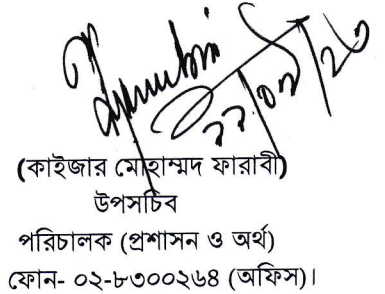 ২২/০৭/২৩
(কাইজার মোহাম্মদ ফারাবী)
উপসচিব
পরিচালক (প্রশাসন ও অর্থ)
ফোন- ০২-৮৩০০২৬৪ (অফিস)।